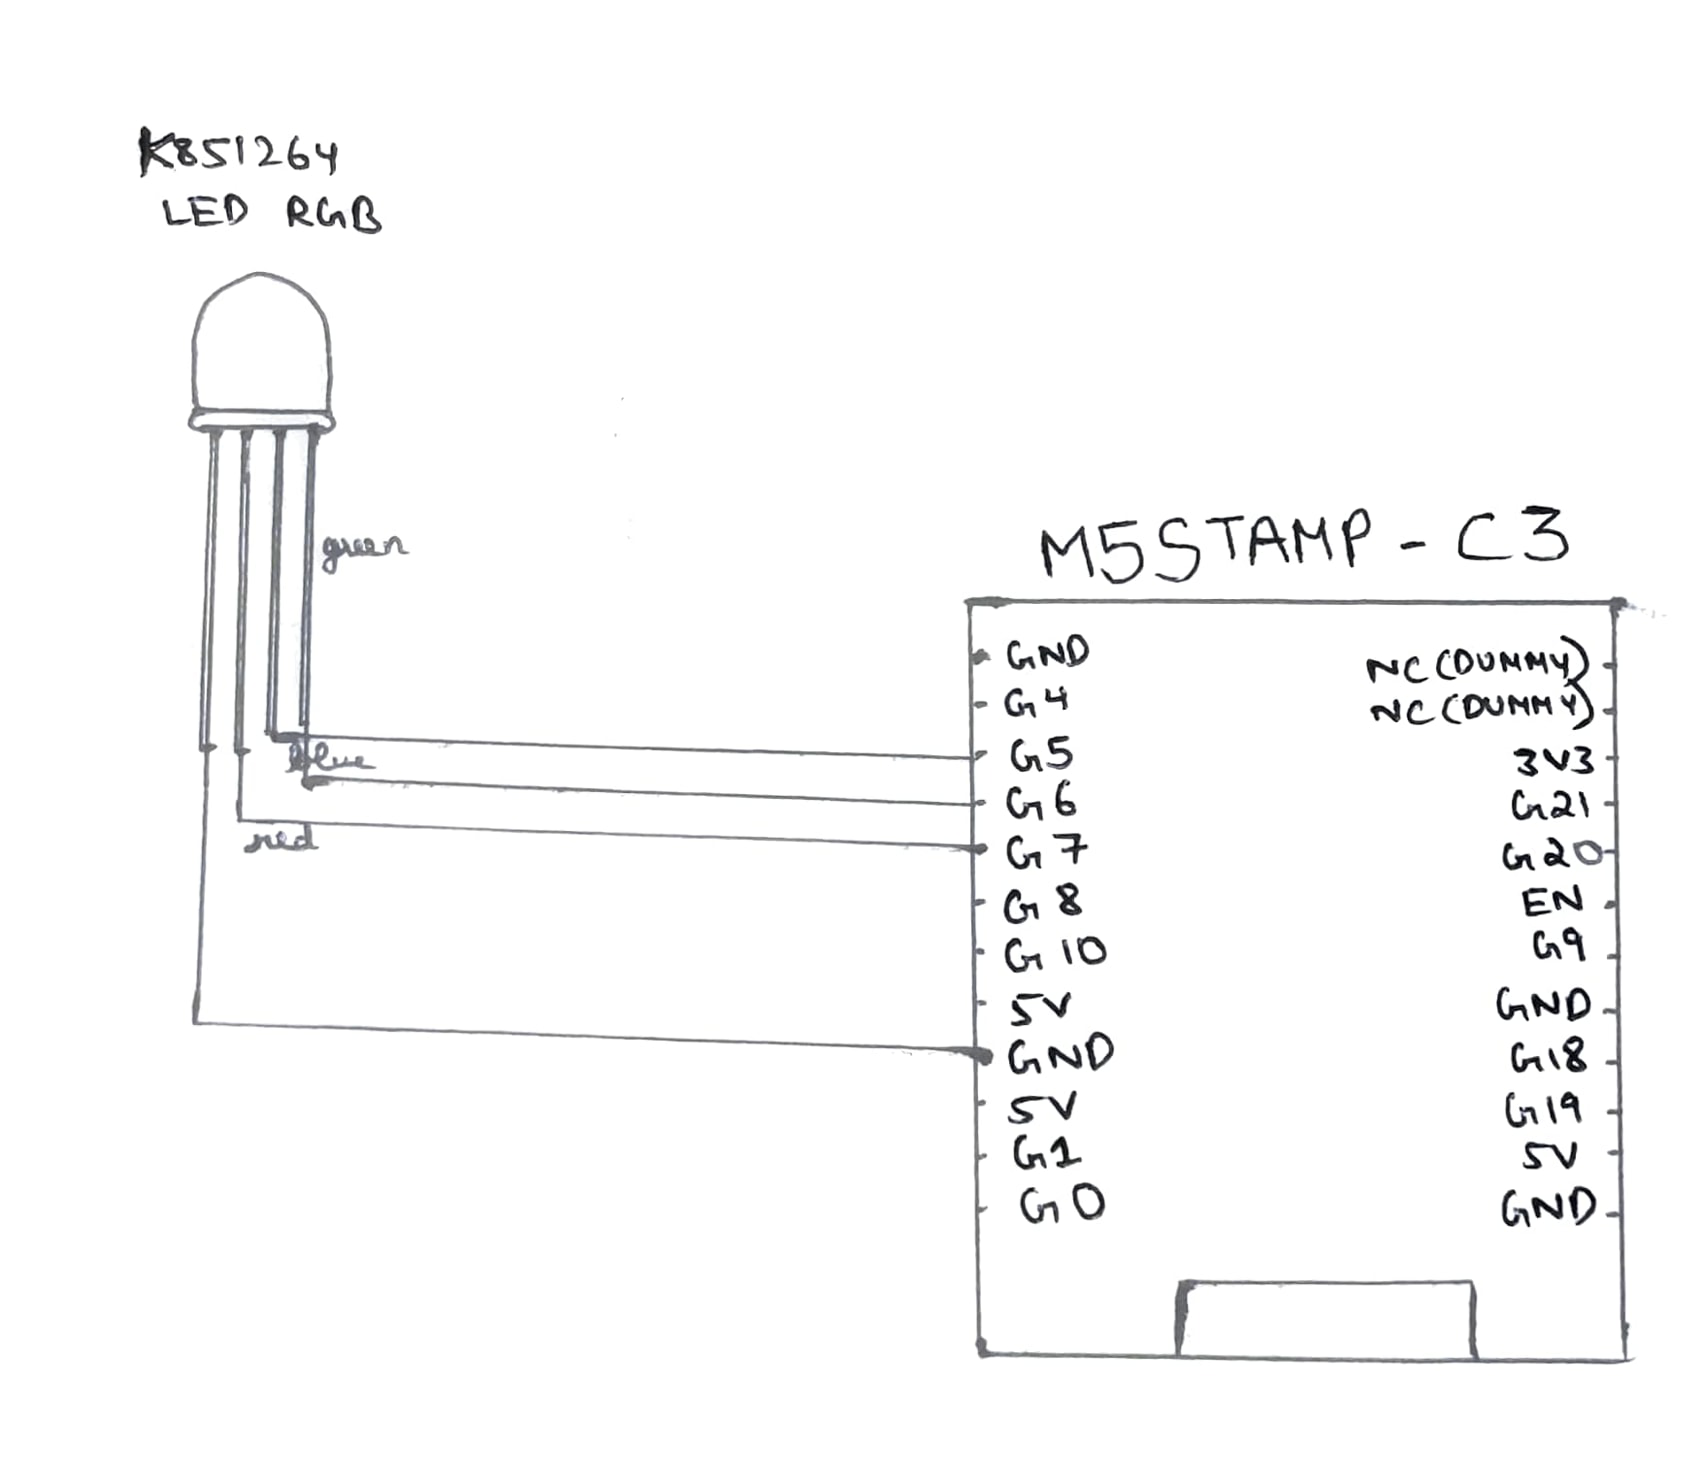 K851264
LED RGB
green
blue
red
M5STAMP - C3
GND
G4
G5
G6
G7
G8
G10
5V
GND
5V
G1
G0
NC (DUMMY)
NC (DUMMY)
3V3
G21
G20
EN
G9
GND
G18
G19
5V
GND